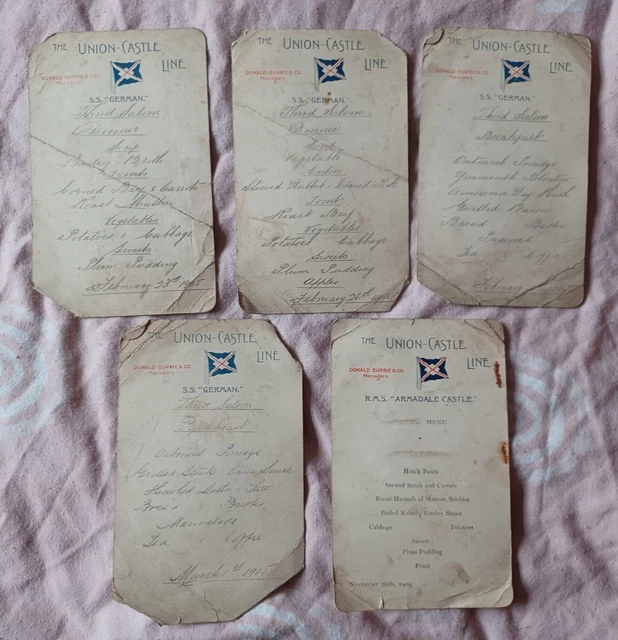 THE UNION-CASTLE LINE
DONALD CURRIE & CO.
Managers
S.S. "GERMAN."
Third Saloon
Dinner
Soup
Barley Broth
Joints
Corned Beef & Carrots
Roast Mutton
Vegetables
Potatoes & Cabbage
Sweets
Plum Pudding
February 23rd 1905
THE UNION-CASTLE LINE
DONALD CURRIE & CO.
Managers
S.S. "GERMAN."
Third Saloon
Dinner
Soup
Vegetable
Entree
Stewed Rabbit & Corned Pork
Joint
Roast Beef
Vegetables
Potatoes Cabbage
Sweets
Plum Pudding
Apples
February 26th 1905
THE UNION-CASTLE LINE
DONALD CURRIE & CO.
Managers
S.S. "GERMAN."
Third Saloon
Breakfast
Oatmeal Porridge
Yarmouth Bloaters
American Dry Hash
Grilled Bacon
Bread Butter
Tea Coffee
February
THE UNION-CASTLE LINE
DONALD CURRIE & CO.
Managers
S.S. "GERMAN."
Third Saloon
Breakfast
Oatmeal Porridge
Grilled Steak
Bread Butter
Marmalade
Tea Coffee
March 1st 1905
THE UNION-CASTLE LINE
DONALD CURRIE & CO.
Managers
R.M.S. "ARMADALE CASTLE."
MENU
Hotch Potch
Stewed Steak and Carrots
Roast Haunch of Mutton,
Boiled Rabbit, Parsley Sauce
Cabbage Potatoes
Sweets
Plum Pudding
Fruit
November 26th, 1905